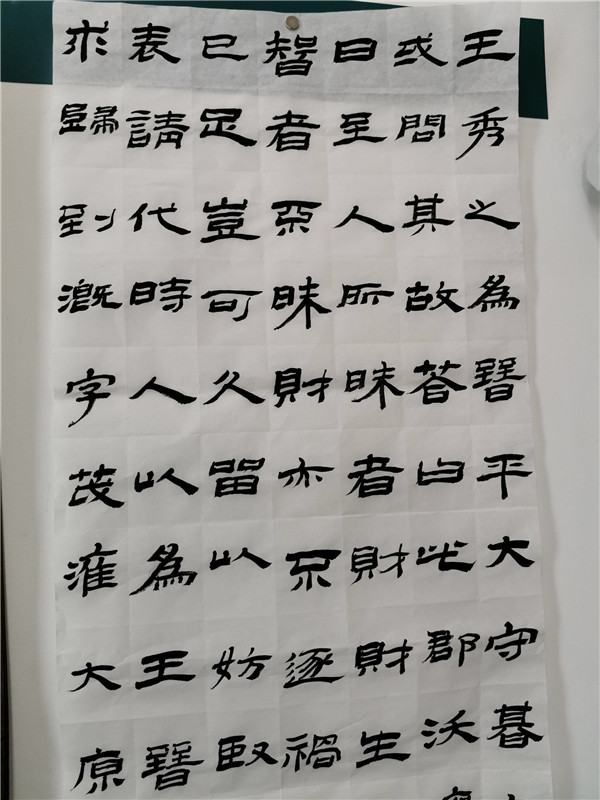 王秀之為晉平大守朞
或問其故荅白此郡沃
日至人所昧者財財生
智者不昧財亦不逐禍
已足豈可久留以妨臤
表請代時人以為王晉
求歸到溉字茂灌大原